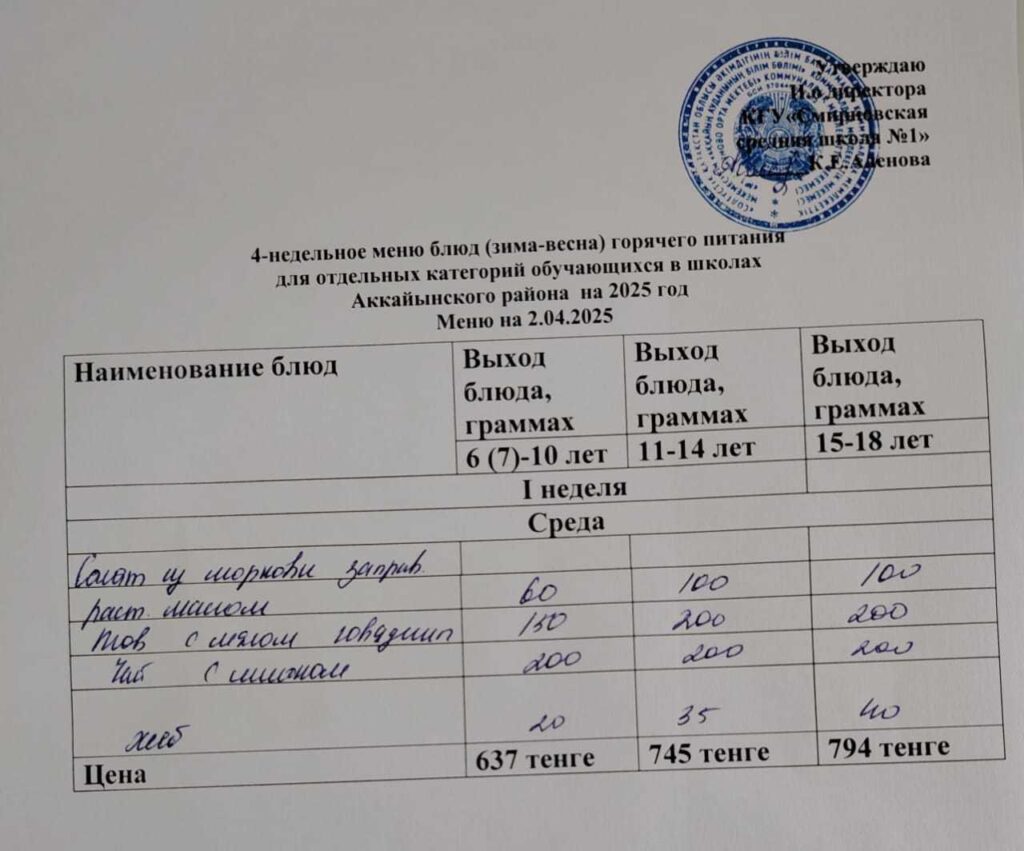 Утверждаю
И.о директора
КГУ«Смирновская
средняя школа №1»
4-недельное меню блюд (зима-весна) горячего питания
для отдельных категорий обучающихся в школах
Аккайынского района на 2025 год
Меню на 2.04.2025
Наименование блюд Выход блюда, граммах Выход блюда, граммах Выход блюда, граммах
6 (7)-10 лет 11-14 лет 15-18 лет
I неделя
Среда
Салат из моркови заправ.
раст. маслом 60 100 100
с мясом 150 200 200
Чай с лимоном 200 200 200
хлеб 20 35 40
Цена 637 тенге 745 тенге 794 тенге